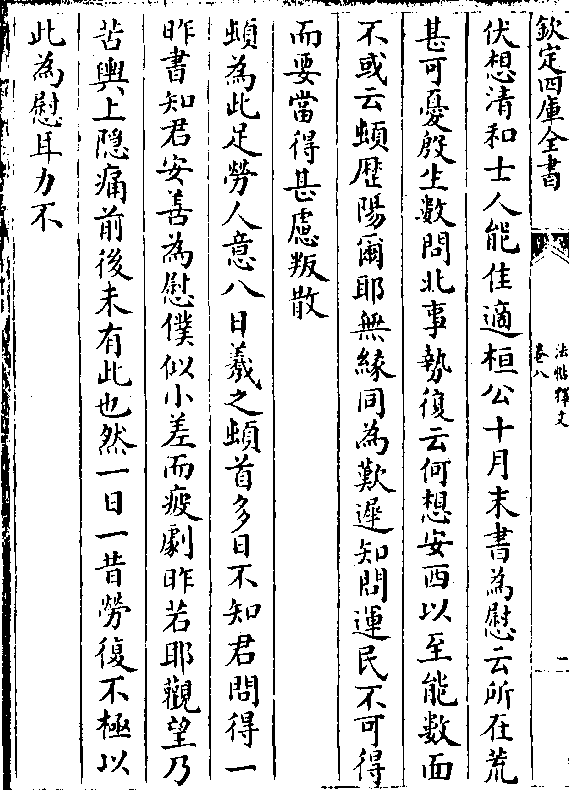 欽定四庫全書
法帖釋文
卷八
一
伏想清和士人能佳適桓公十月末書為慰云所在荒
甚可憂殷生數問北事勢復云何想安西以至能數面
不或云頓歷陽爾耶無緣同為歎遲知問運民不可得
而要當得甚慮叛散
頓為此足勞人意八日羲之頓首多日不知君問得一
昨書知君安善為慰僕似小差而疲劇昨若耶觀望乃
苦輿上隱痛前後未有此也然一日一昔勞復不極以
此為慰耳力不